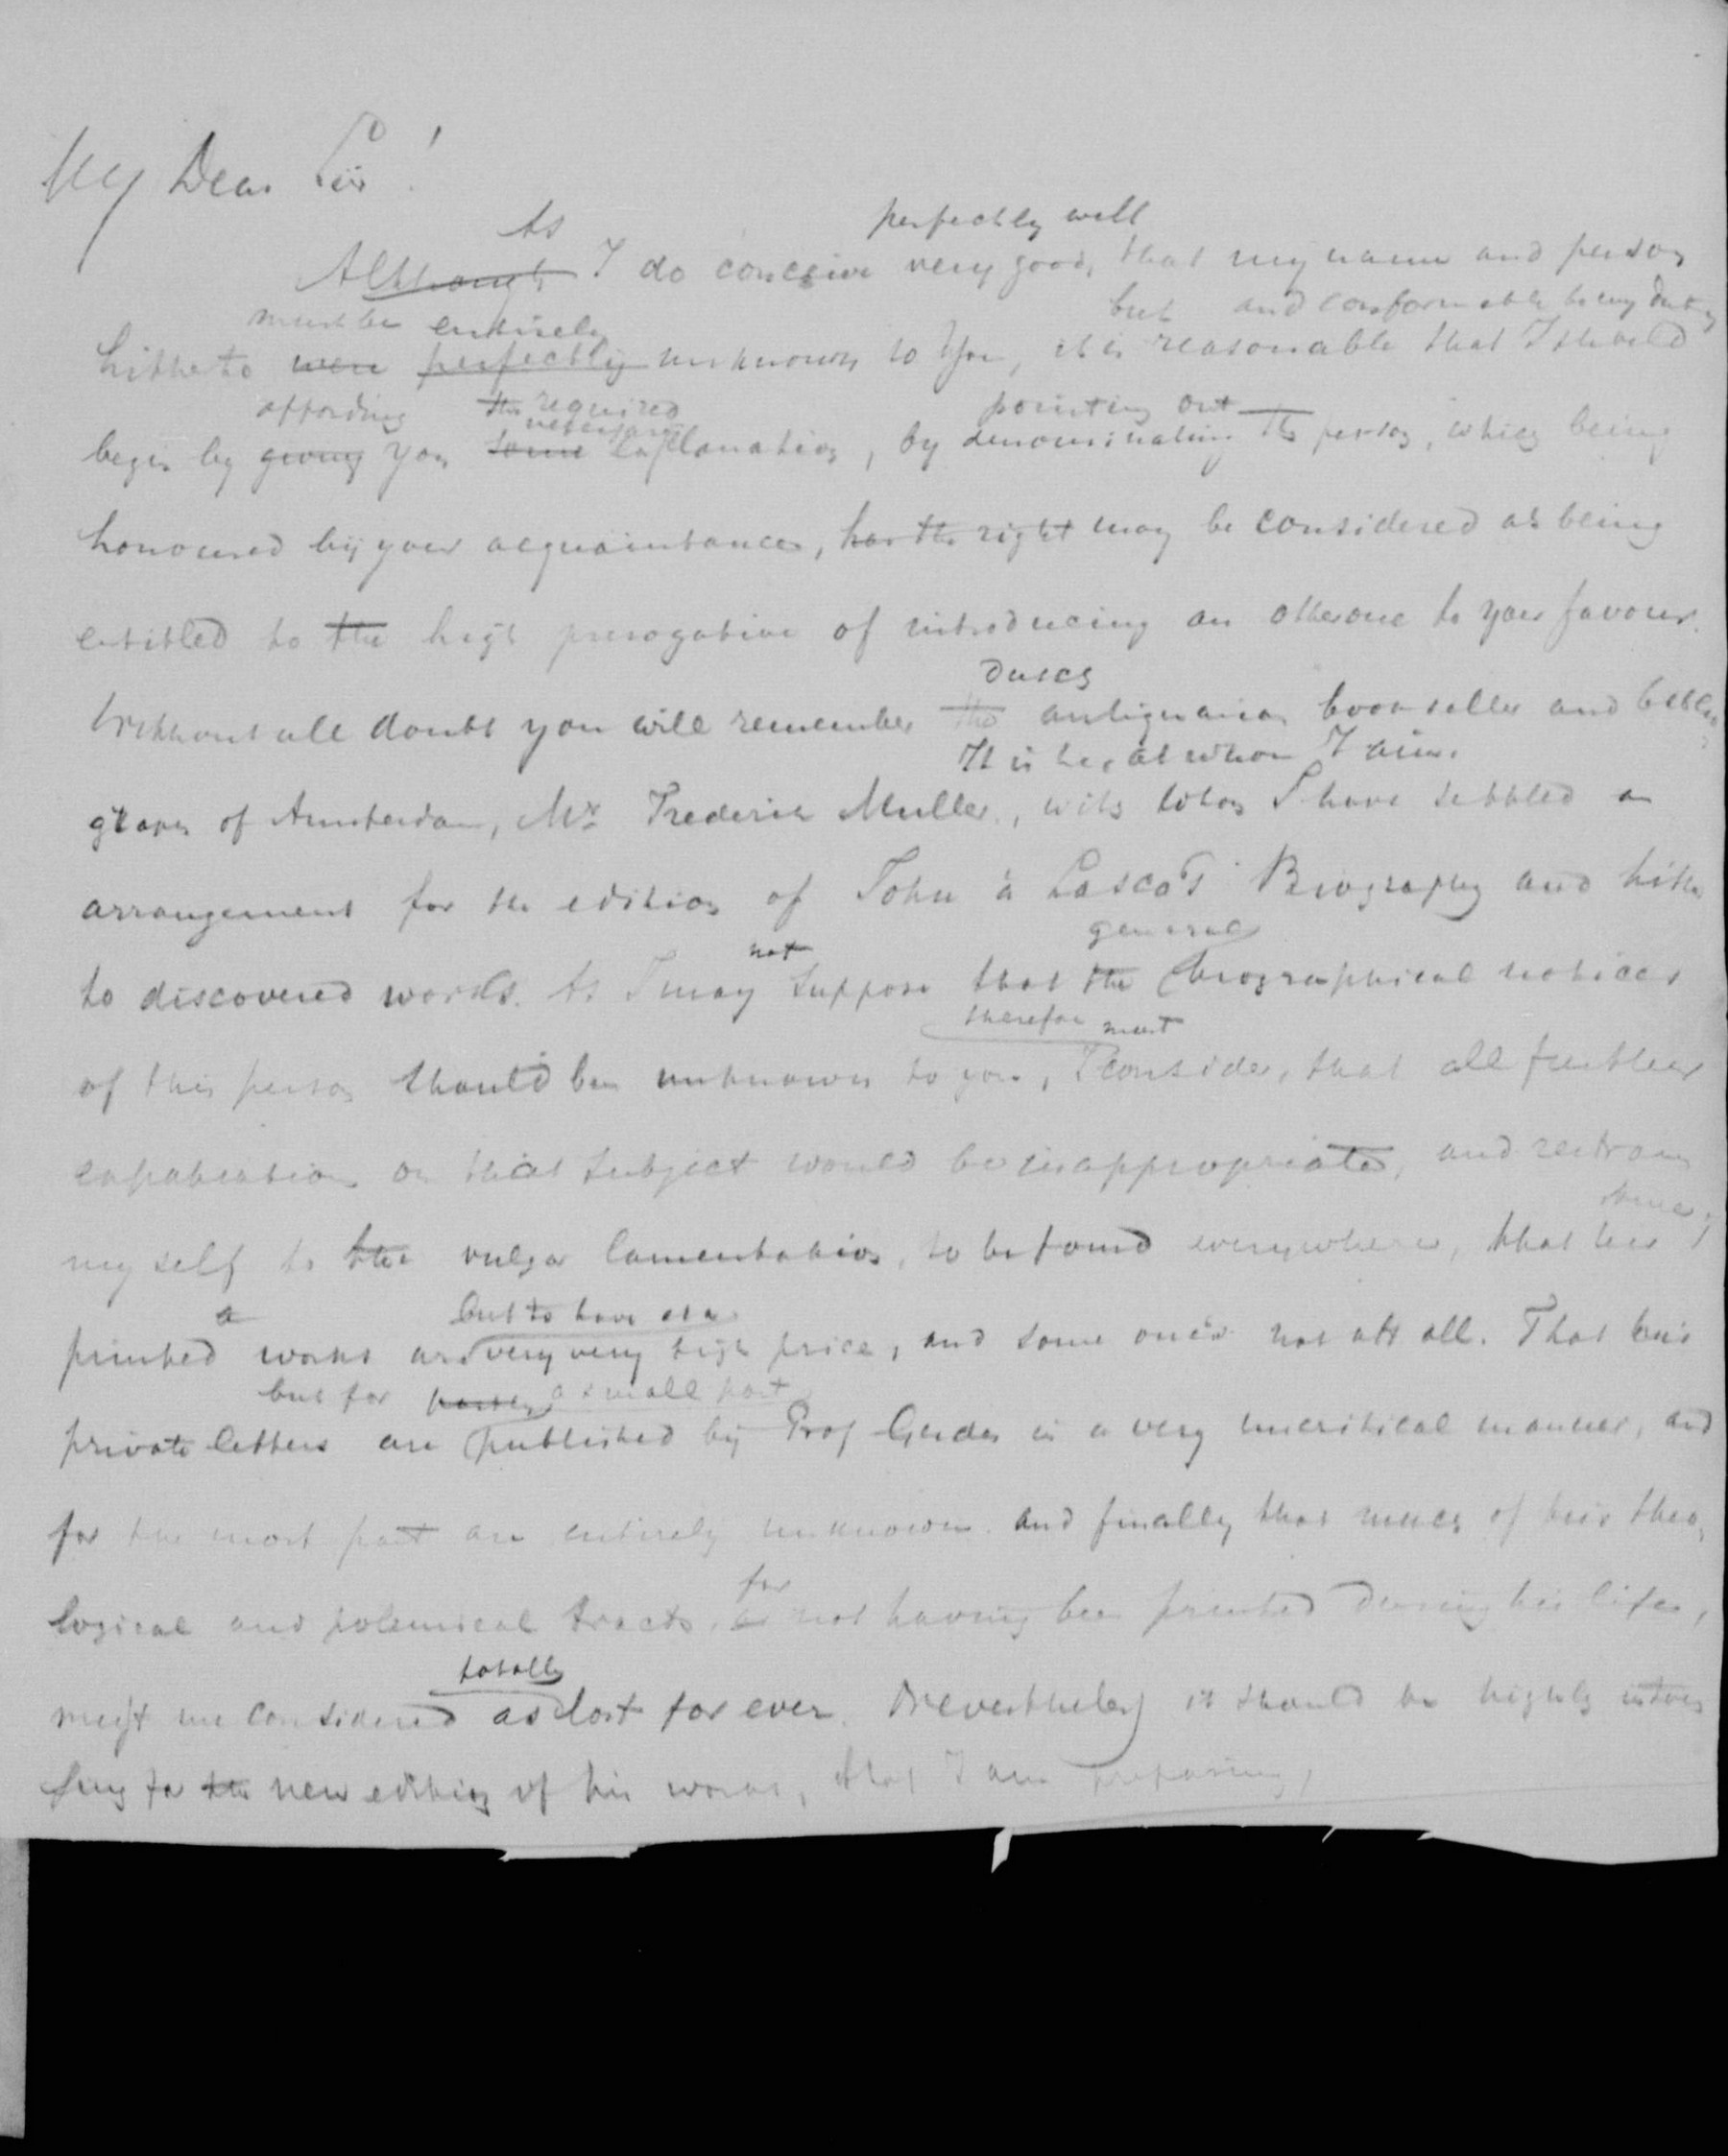 My Dear Sir!
As perfectly well
Although I do conceive very good, that my name and person
must be entirely but and conformable to my duty
hitherto were perfectly unknown to You, it is reasonable that I should
affording the required
necessary pointing out
begin by giving you some explanation, by denominating the person, which being
honoured bij your acquaintance, has the right may be considered as being
entitled to the high prerogative of introducing an otherone to your favour.
Dutch
Without all doubt you will remember the antiquarian bookseller and biblio
It is he, at whom I aim.
graph of Amsterdam, Mr. Frederik Muller, with whom I have settled an
arrangement for the edition of John à Lasco's Biography and hither
not general
to discovered works. As I may suppose that the biographical notices
therefore must
of this person should be unknown to you, I consider, that all further
on that subject would be inappropriated, and restrain
some
my self to the vulgar lamentation, to be found everywhere, that his
but to have at a
printed works are very very high price, and some one's not att all. That his
but for partly a small part
private letters are published by Prof Gerdes in a very uncritical manner, and
for the most part are entirely unknown. and finally that much of his theo,
for
logical and polemical tracts, as not having been printed during his life,
totally
considered as lost for ever. Nevertheless it should be highly
for the new edition of his works, that I am preparing,